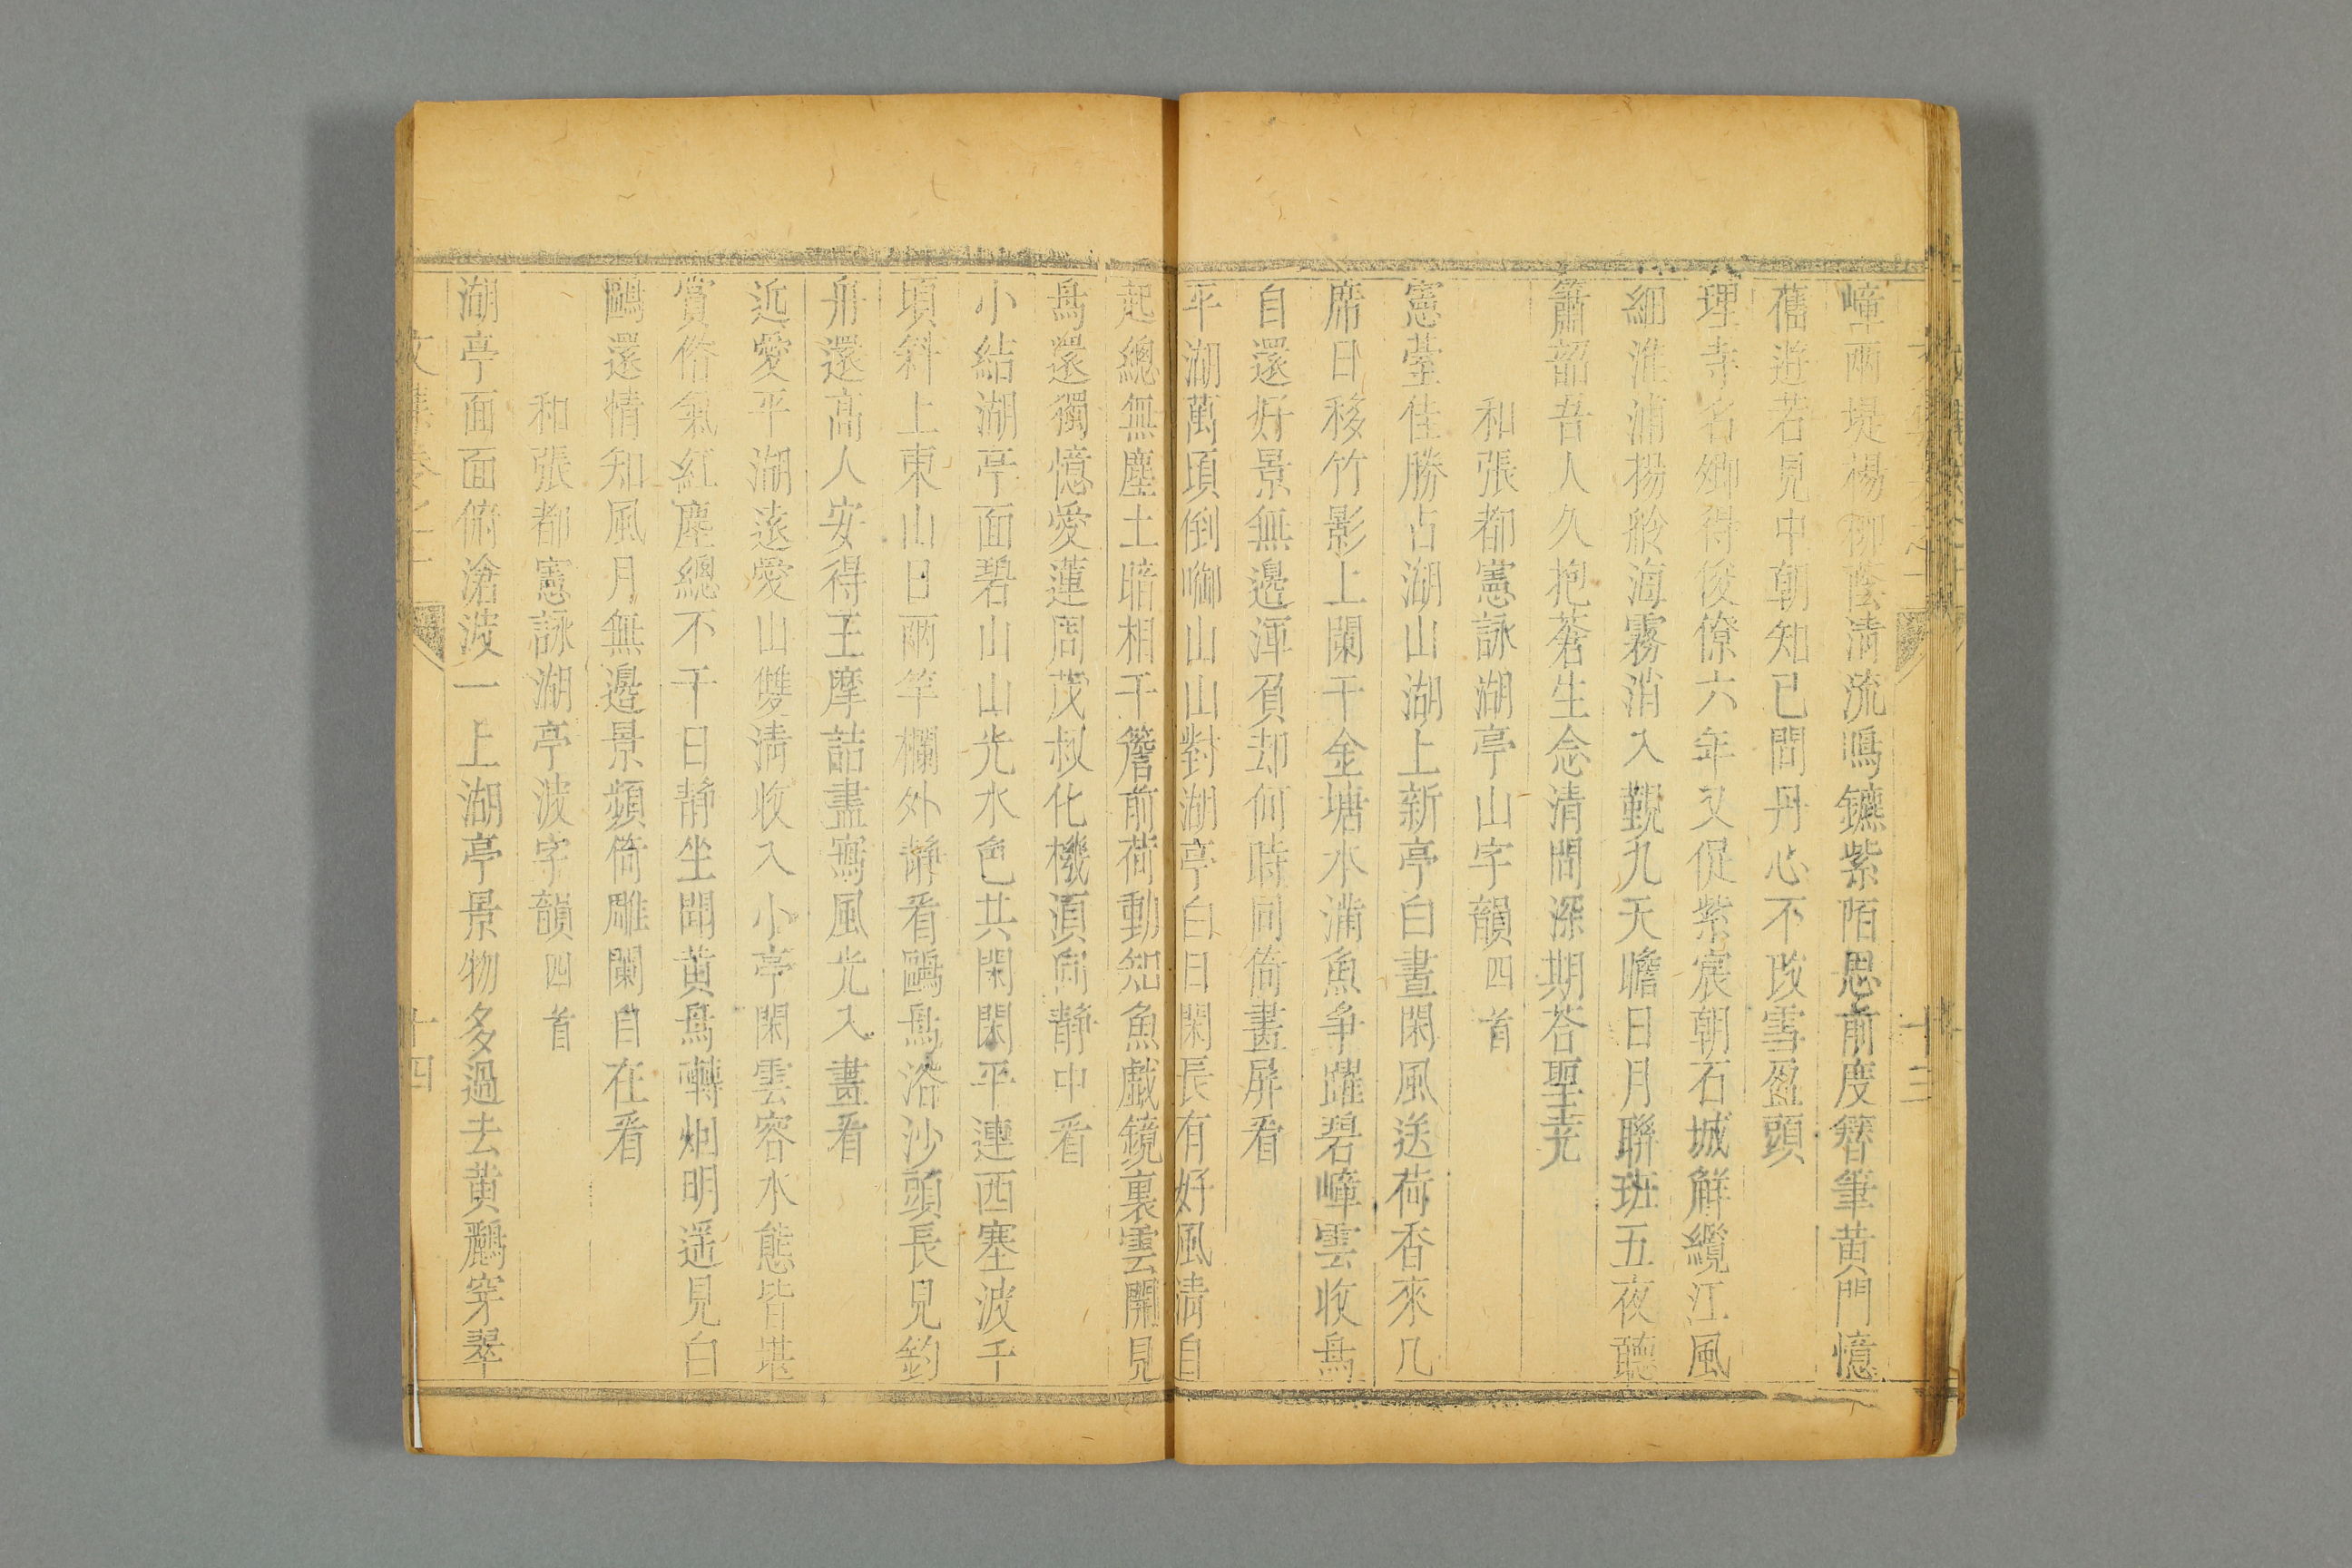 嶂兩堤楊柳蔭清流鳴鑣紫陌思前度簪筆黄門憶
舊遊若見中朝知已問丹心不改雪盈頭
理寺名卿得俊僚六年又促紫宸朝石城觧纜江風
細淮浦揚舲海霧消入覲九天瞻日月聯班五夜聽
簫韶吾人久抱蒼生念清問深期荅聖尭
和張都憲詠湖亭山字韻四首
憲䑓佳勝占湖山湖上新亭白晝閑風送荷香來几
席日移竹影上闌干金塘水滿魚争躍碧嶂雲收鳥
自還好景無邊渾負却何時同倚畫屏看
平湖萬頃倒啣山山對湖亭白日閑長有好風清自
起總無塵土暗相干簷前荷動知魚戯鏡裏雲開見
鳥還獨憶愛蓮周茂叔化機須向静中看
小結湖亭面碧山山光水色共閑閑平連西塞波千
頃斜上東山日兩竿欄外静看鷗鳥浴沙頭長見釣
舟還高人安得王摩詰盡寫風光入畫看
近愛平湖遠愛山雙清收入小亭閑雲容水態皆堪
賞俗氣紅塵總不干日静坐聞黄鳥囀烟明遥見白
鷗還情知風月無邊景頻倚雕闌自在看
和張都憲詠湖亭波字韻四首
湖亭面面俯滄波一上湖亭景物多過去黄鸝穿翠
十三
十四